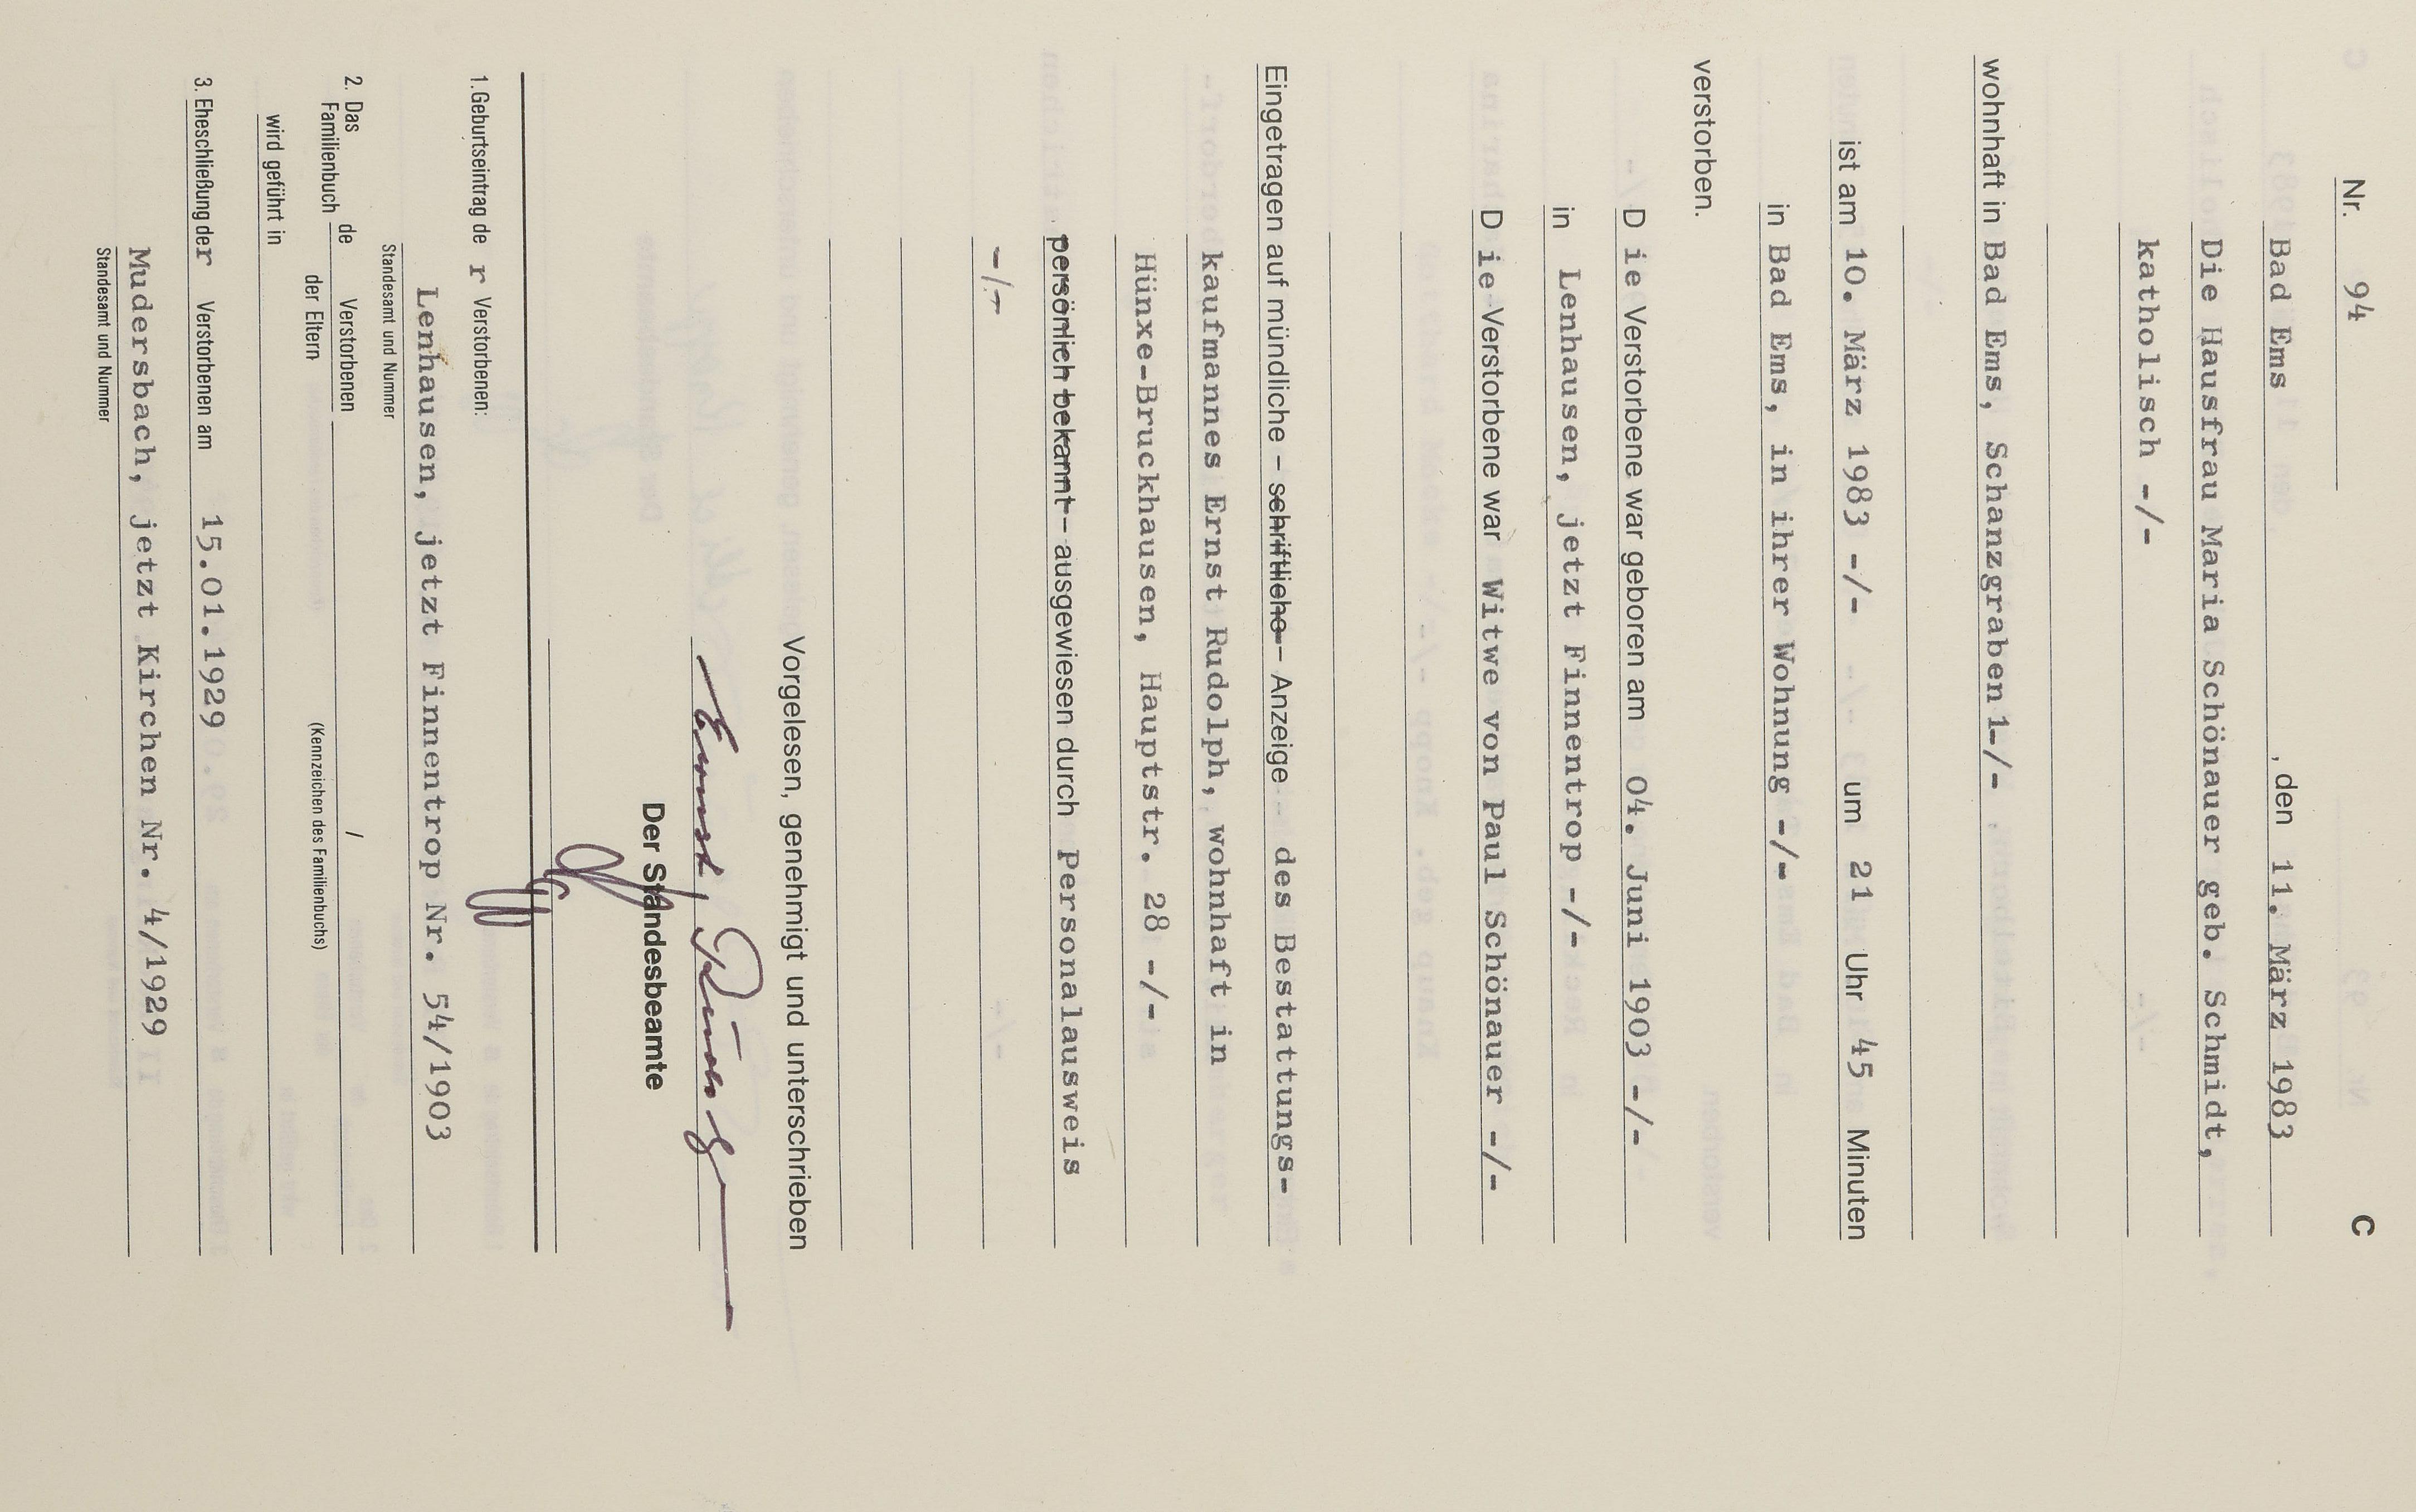 C
Nr. 94
Bad Ems , den 11. März 1983
Die Hausfrau Maria Schönauer geb. Schmidt,
katholisch -/-
wohnhaft in Bad Ems, Schanzgraben 1-/-
ist am 10. März 1983 -/- um 21 Uhr 45 Minuten
in Bad Ems, in ihrer Wohnung -/-
verstorben.
D ie Verstorbene war geboren am 04. Juni 1903 -/-
in Lenhausen, jetzt Finnentrop -/-
D ie Verstorbene war Witwe von Paul Schönauer -/-
Eingetragen auf mündliche – schriftliche – Anzeige des Bestattungs-
kaufmannes Ernst Rudolph, wohnhaft in
Hünxe-Bruckhausen, Hauptstr. 28 -/-
persönlich bekannt – ausgewiesen durch Personalausweis
-/-
Vorgelesen, genehmigt und unterschrieben
Ernst
Der Standesbeamte
1. Geburtseintrag de r Verstorbenen:
Lenhausen, jetzt Finnentrop Nr. 54/1903
Standesamt und Nummer
2. Das Familienbuch de Verstorbenen /
der Eltern (Kennzeichen des Familienbuchs)
wird geführt in
3. Eheschließung der Verstorbenen am 15.01.1929
Mudersbach, jetzt Kirchen Nr. 4/1929
Standesamt und Nummer